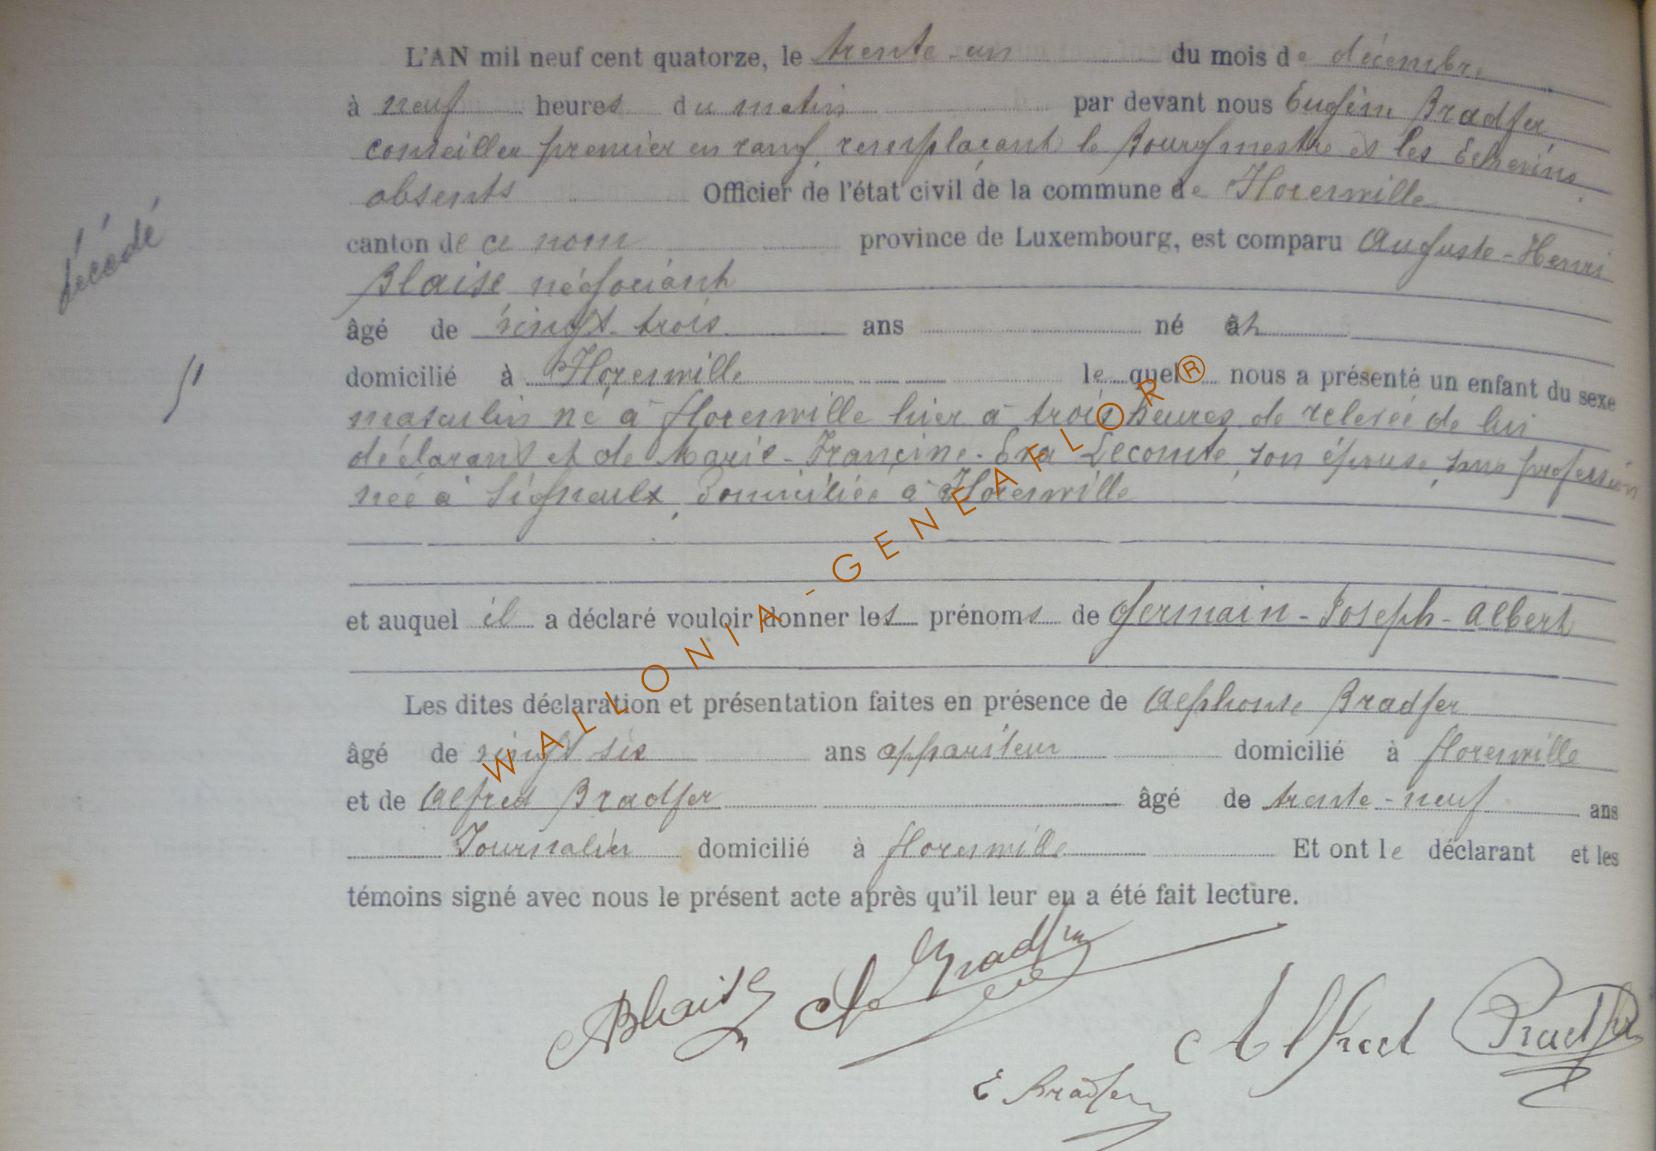 L'AN mil neuf cent quatorze, le trente-un du mois de décembre
à neuf heures du matin par devant nous Eugène Bradfer
conseiller premier en rang, remplaçant le Bourgmestre et les Echevins
absents Officier de l'état civil de la commune de Florenville
canton de ce nom province de Luxembourg, est comparu Auguste-Henri
Blaise négociant
âgé de vingt-trois ans né à
domicilié à Florenville lequel nous a présenté un enfant du sexe
masculin né à Florenville hier à trois heures de relevée de lui
déclarant et de Marie-Francine-Eva Lecomte, son épouse, sans profession
née à Signeulx, domiciliée à Florenville
et auquel il a déclaré vouloir donner les prénoms de Germain-Joseph-Albert
Les dites déclaration et présentation faites en présence de Alphonse Bradfer
âgé de vingt six ans appariteur domicilié à Florenville
et de Alfred Bradfer âgé de trente-neuf ans
Journalier domicilié à Florenville Et ont le déclarant et les
témoins signé avec nous le présent acte après qu'il leur en a été fait lecture.
ABlaise
A Bradfer
Alfred Bradfer
E Bradfer
décédé
WALLONIA-GENEAFLOR®